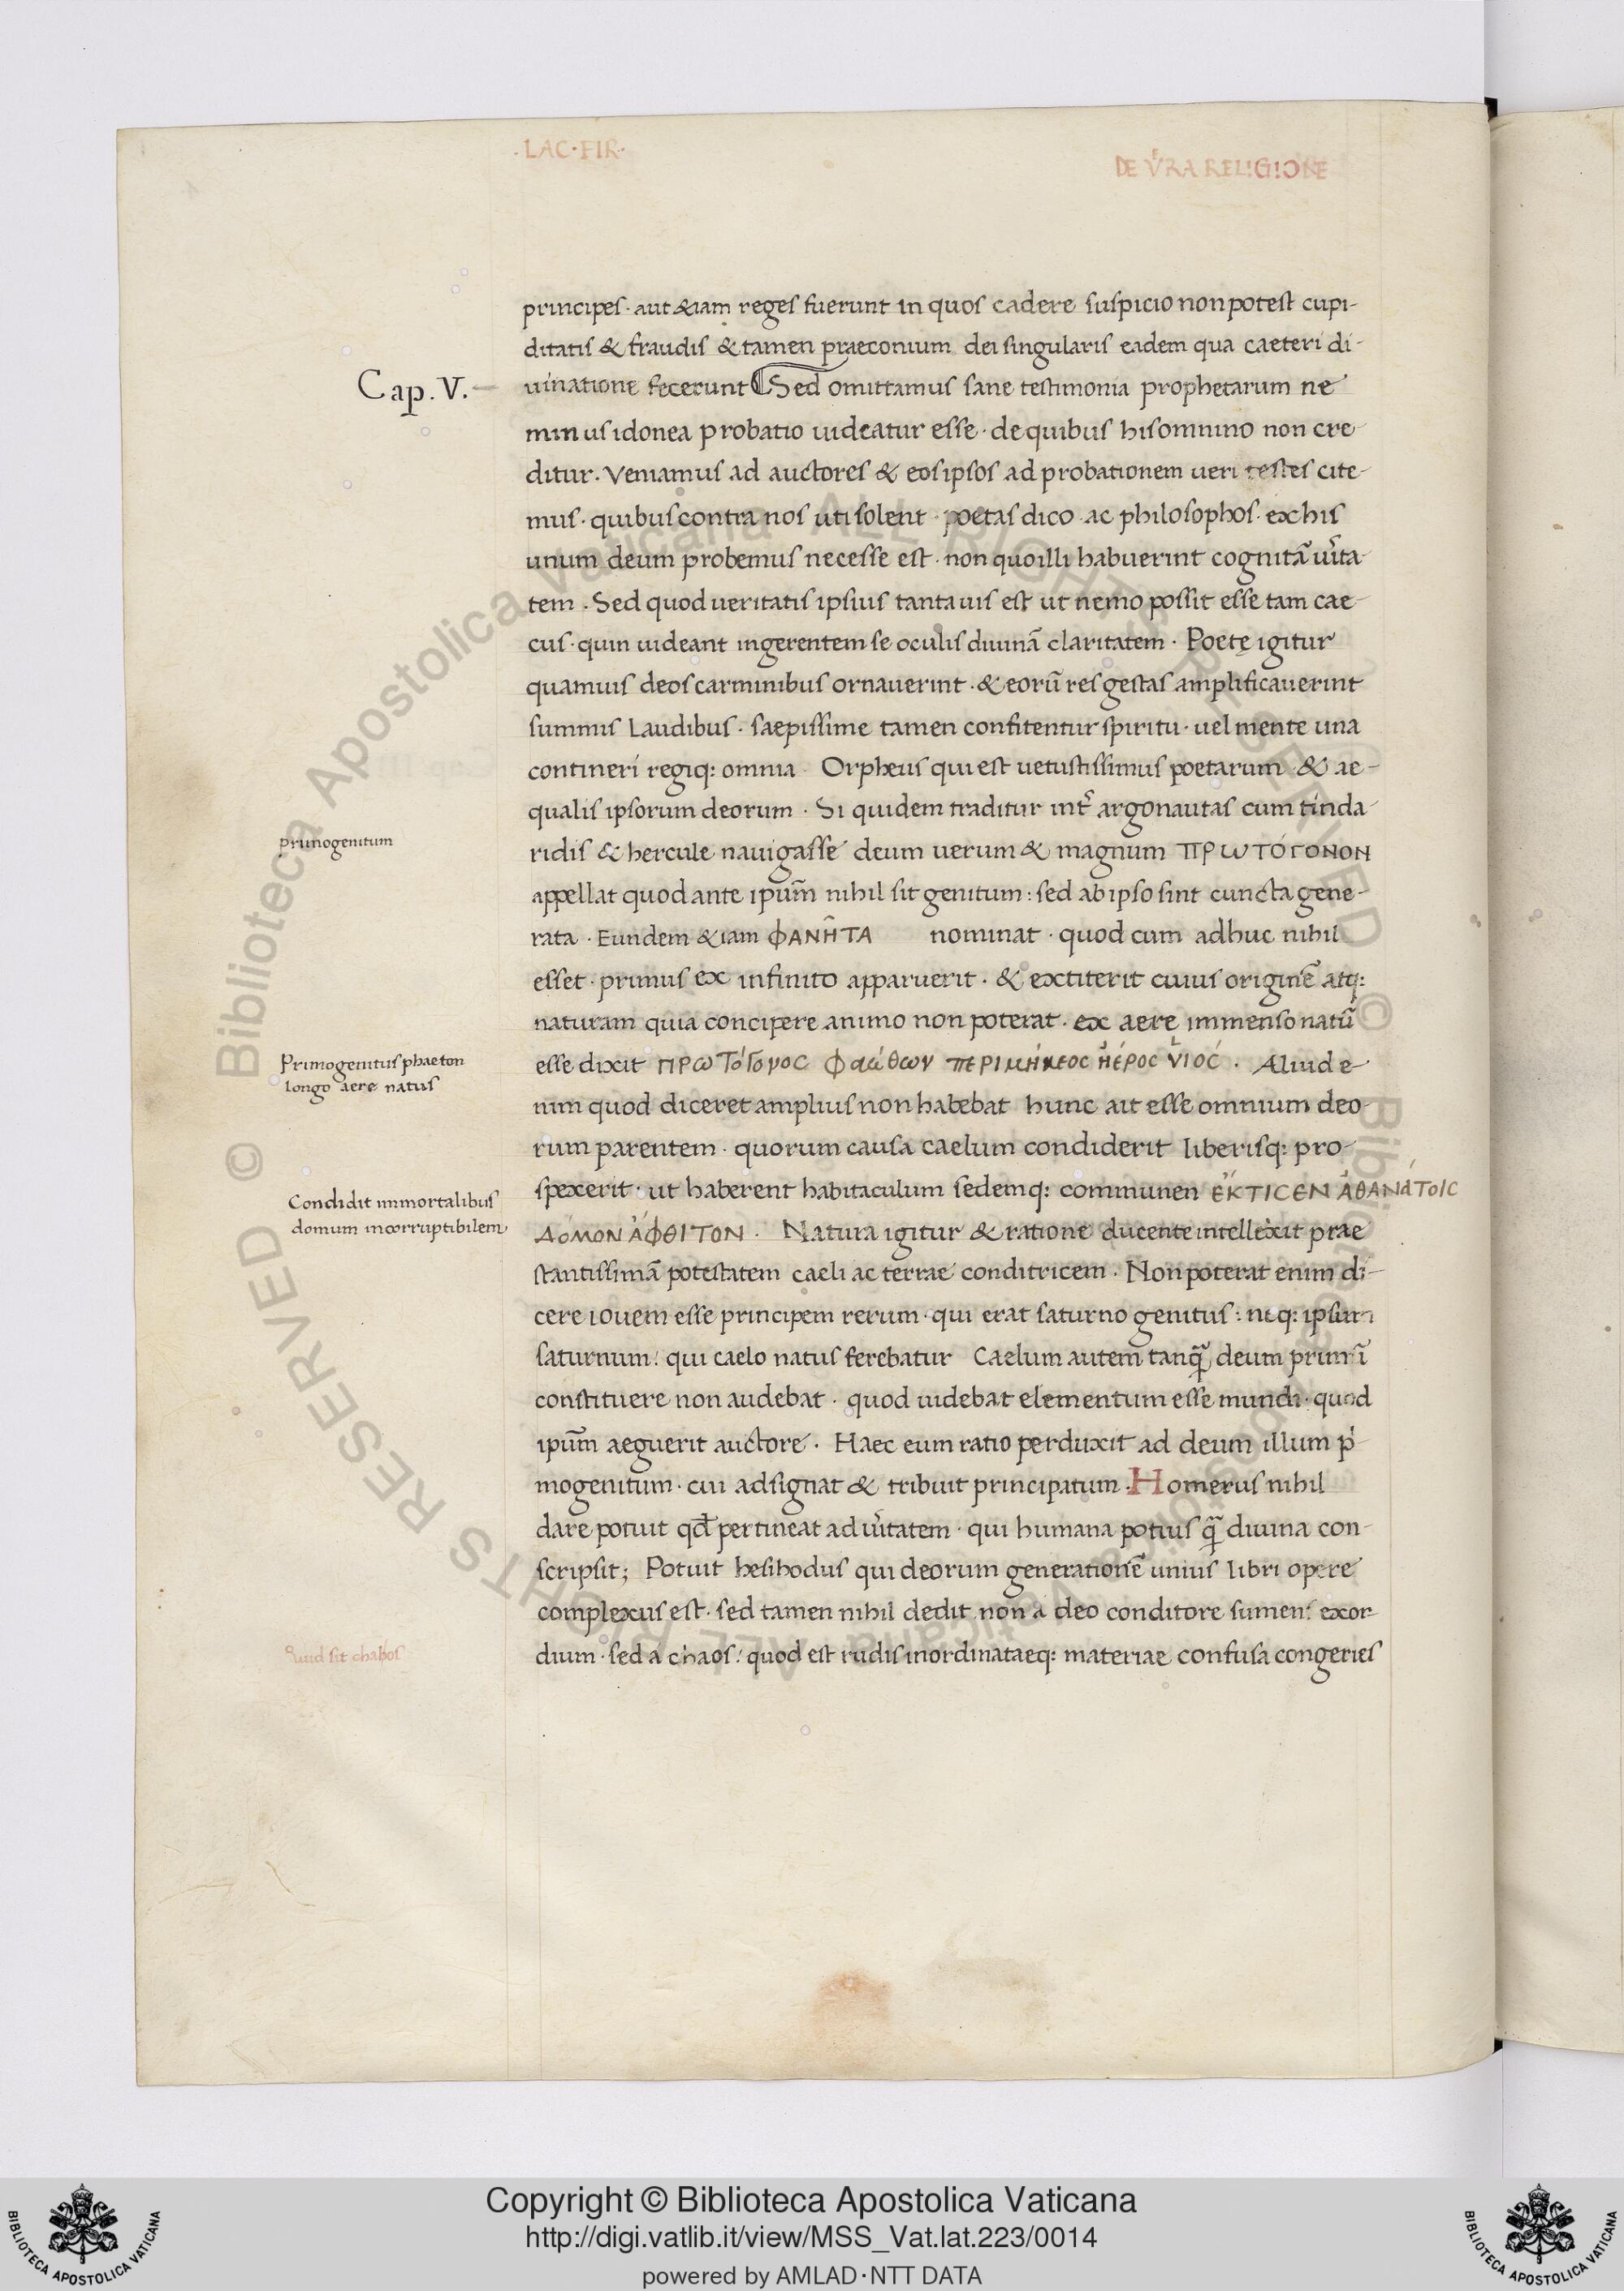 .LAC·FIR·
DE VRA RELIGIONE
principes · aut &iam reges fuerunt in quos cadere suspicio non potest cupi-
ditatis & fraudis & tamen praeconium dei singularis eadem qua caeteri di-
Cap. V.
uinatione fecerunt Sed omittamus sane testimonia prophetarum ne
minus idonea probatio uideatur esse · de quibus his omnino non cre-
ditur. Veniamus ad auctores & eos ipsos ad probationem ueri testes cite-
mus · quibus contra nos uti solent · poetas dico · ac philosophos · ex his
unum deum probemus necesse est · non quo illi habuerint cognitã ur̃ita-
tem . Sed quod ueritatis ipsius tanta uis est ut nemo possit esse tam cae-
cus · quin uideant ingerentem se oculis diuinã claritatem · Poetę igitur
quamuis deos carminibus ornauerint · & eorũ res gestas amplificauerint
summis laudibus · saepissime tamen confitentur spiritu · uel mente una
contineri regiq: omnia Orpheus qui est uetustissimus poetarum & ae-
qualis ipsorum deorum · Si quidem traditur int̃ argonautas cum tinda-
primogenitum
ridis & hercule nauigasse deum uerum & magnum πρωτόγονον
appellat quod ante ipum̃ nihil sit genitum : sed ab ipso sint cuncta gene-
rata · Eundem &iam ΦΑΝΗ͂ΤΑ nominat · quod cum adhuc nihil
esset · primus ex infinito apparuerit · & extiterit cuius originẽ atq:
naturam quia concipere animo non poterat · ex aere immenso natũ
Primogenitus phaeton
longo aere natus
esse dixit πρωτόγονος φαώθων περιμήκεος ἠέρος ὑιός . Aliud e-
nim quod diceret amplius non habebat hunc ait esse omnium deo-
rum parentem · quorum causa caelum condiderit liberisq: pro-
Condidit immortalibus
domum incorruptibilem
spexerit · ut haberent habitaculum sedemq: communen ἔκτιςεν ἀθανάτοις
δόμον ἄφθιτον . Natura igitur & ratione ducente intellexit prae
stantissimã potestatem caeli ac terrae conditricem . Non poterat enim di-
cere iouem esse principem rerum · qui erat saturno genitus : neq: ipsum
saturnum : qui caelo natus ferebatur Caelum autem tanq̃ deum primũ
constituere non audebat · quod uidebat elementum esse mundi · quod
ipum̃ aeguerit auctore . Haec eum ratio perduxit ad deum illum pi
mogenitum · cui adsignat & tribuit principatum . Homerus nihil
dare potuit qd̃ pertineat ad ur̃itatem · qui humana potius q̃ diuina con-
scripsit; Potuit hesihodus qui deorum generationẽ unius libri opere
complexus est · sed tamen nihil dedit non a deo conditore sumens exor-
Quid sit chahos
dium · sed a chaos : quod est rudis inordinataeq: materiae confusa congeries
© Biblioteca Apostolica Vaticana ALL RIGHTS RESERVED © Biblioteca Apostolica Vaticana ALL RIGHTS RESERVED
Copyright © Biblioteca Apostolica Vaticana
http://digi.vatlib.it/view/MSS_Vat.lat.223/0014
powered by AMLAD·NTT DATA
BIBLIOTECA APOSTOLICA VATICANA
BIBLIOTECA APOSTOLICA VATICANA